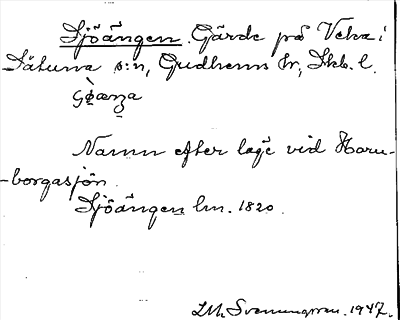 Sjöängen. Gärde på Veka i
Sätuna s:n, Gudhems hr, Skb. l.
Namn efter läge vid Horn-
-borgasjön.
Sjöängen lm. 1820.
1947.